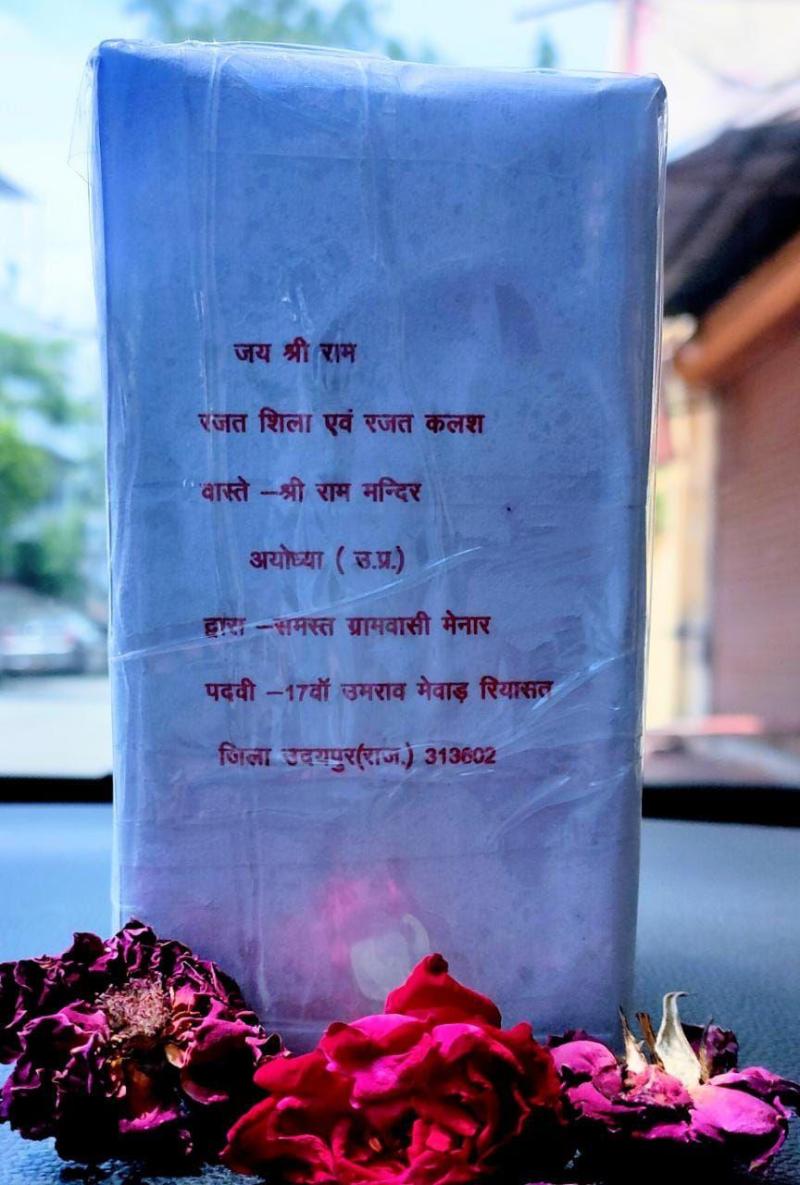 जय श्री राम
रजत शिला एवं रजत कलश
वास्ते –श्री राम मन्दिर
अयोध्या ( उ.प्र.)
द्वारा –समस्त ग्रामवासी मेनार
पदवी –17वॉ उमराव मेवाड़ रियासत
जिला उदयपुर(राज.) 313602